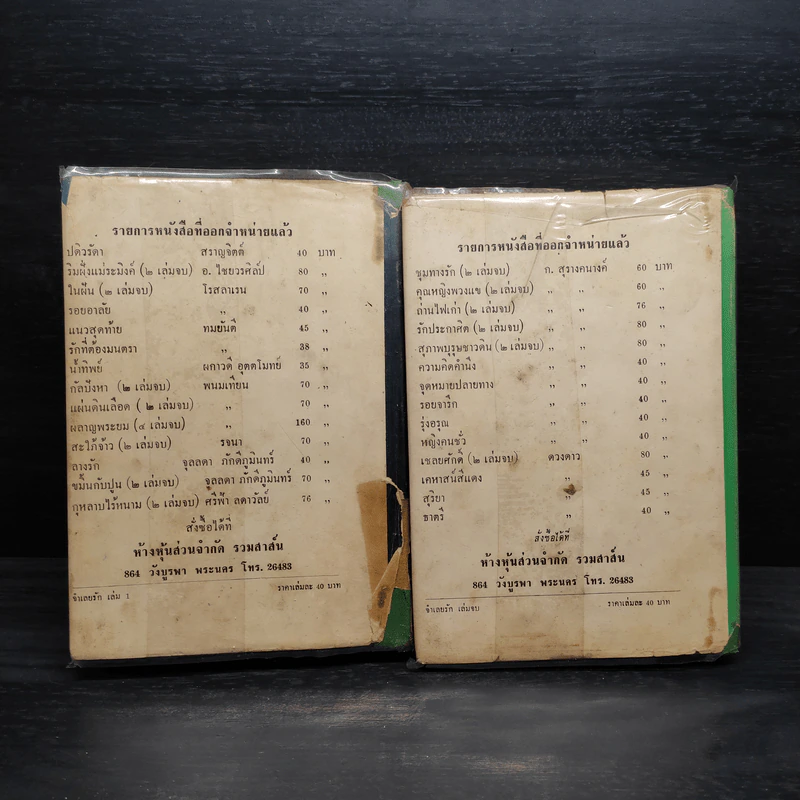 รายการหนังสือที่ออกจำหน่ายแล้ว
ปดิวรัดา สราญจิตต์ 40 บาท
ริมฝั่งแม่ระมิงค์ (๒ เล่มจบ) อ. ไชยวรศิลป์ 80 ,,
ในฝัน (๒ เล่มจบ) โรสลาเรน 70 ,,
รอยอาลัย ,, 40 ,,
แนวสุดท้าย ทมยันตี 45 ,,
รักที่ต้องมนตรา ,, 38 ,,
น้ำทิพย์ ผกาวดี อุตตโมทย์ 35 ,,
กัลปังหา (๒ เล่มจบ) พนมเทียน 70 ,,
แผ่นดินเลือด (๒ เล่มจบ) ,, 70 ,,
ผลาญพระยม (๔ เล่มจบ) ,, 160 ,,
สะใภ้จ้าว (๒ เล่มจบ) รจนา 70 ,,
ลางรัก จุลลดา ภักดีภูมินทร์ 40 ,,
ขมิ้นกับปูน (๒ เล่มจบ) จุลลดา ภักดีภูมินทร์ 70 ,,
กุหลาบไร้หนาม (๒ เล่มจบ) ศรีฟ้า ลดาวัลย์ 76 ,,
สั่งซื้อได้ที่
ห้างหุ้นส่วนจำกัด รวมสาส์น
864 วังบูรพา พระนคร โทร. 26483
จำเลยรัก เล่ม 1 ราคาเล่มละ 40 บาท
รายการหนังสือที่ออกจำหน่ายแล้ว
ชุมทางรัก (๒ เล่มจบ) ก. สุรางคนางค์ 60 บาท
คุณหญิงพวงแข (๒ เล่มจบ) ,, ,, 60 ,,
ถ่านไฟเก่า (๒ เล่มจบ) ,, ,, 76 ,,
รักประกาศิต (๒ เล่มจบ) ,, ,, 80 ,,
สุภาพบุรุษชาวดิน (๒ เล่มจบ) ,, ,, 80 ,,
ความคิดคำนึง ,, ,, 40 ,,
จุดหมายปลายทาง ,, ,, 40 ,,
รอยจารึก ,, ,, 40 ,,
รุ่งอรุณ ,, ,, 40 ,,
หญิงคนชั่ว ,, ,, 40 ,,
เชลยศักดิ์ (๒ เล่มจบ) ดวงดาว 80 ,,
เคหาสน์สีแดง ,, 45 ,,
สุริยา ,, 45 ,,
ธาตรี ,, 40 ,,
สั่งซื้อได้ที่
ห้างหุ้นส่วนจำกัด รวมสาส์น
864 วังบูรพา พระนคร โทร. 26483
จำเลยรัก เล่มจบ ราคาเล่มละ 40 บาท